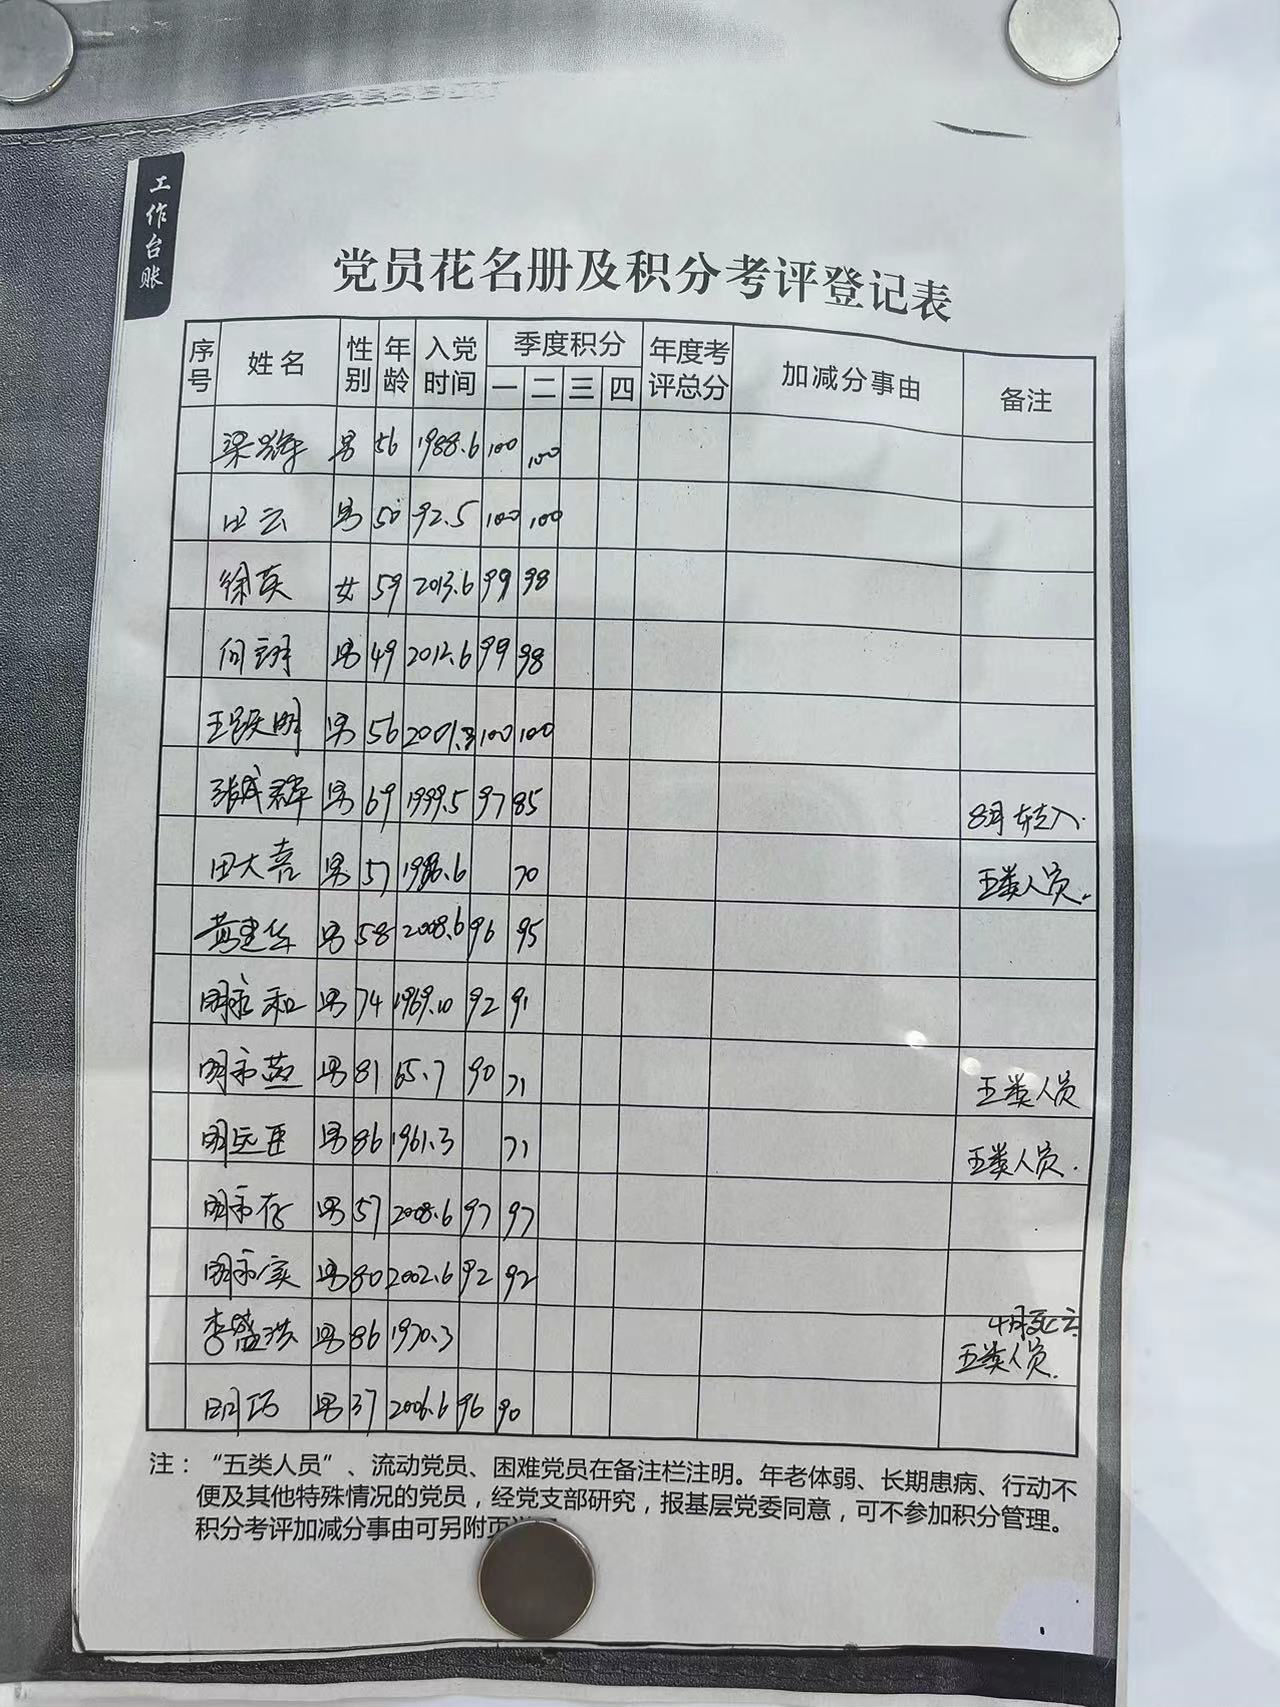 工作台账
党员花名册及积分考评登记表
序号 姓名 性别 年龄 入党时间 季度积分 一 二 三 四 年度考评总分 加减分事由 备注
梁 男 56 1988.6 100 100
田云 男 50 92.5 100 100
徐英 女 59 2013.6 99 98
何 男 49 2012.6 99 98
王跃明 男 56 2001. 100 100
张成 男 69 1999.5 97 85 8月转入.
田大喜 男 57 .6 70 五类人员.
黄建华 男 58 2008.6 96 95
明 和 男 74 1969.10 92 91
明 男 81 65.7 90 71 五类人员
明 男 86 1961.3 71 五类人员.
明 存 男 57 2008.6 97 97
明 男 80 2002.6 92 92
李盛洪 男 86 1970.3 4月死亡 五类人员.
明巧 男 37 2006.6 96 90
注：“五类人员”、流动党员、困难党员在备注栏注明。年老体弱、长期患病、行动不
便及其他特殊情况的党员，经党支部研究，报基层党委同意，可不参加积分管理。
积分考评加减分事由可另附页